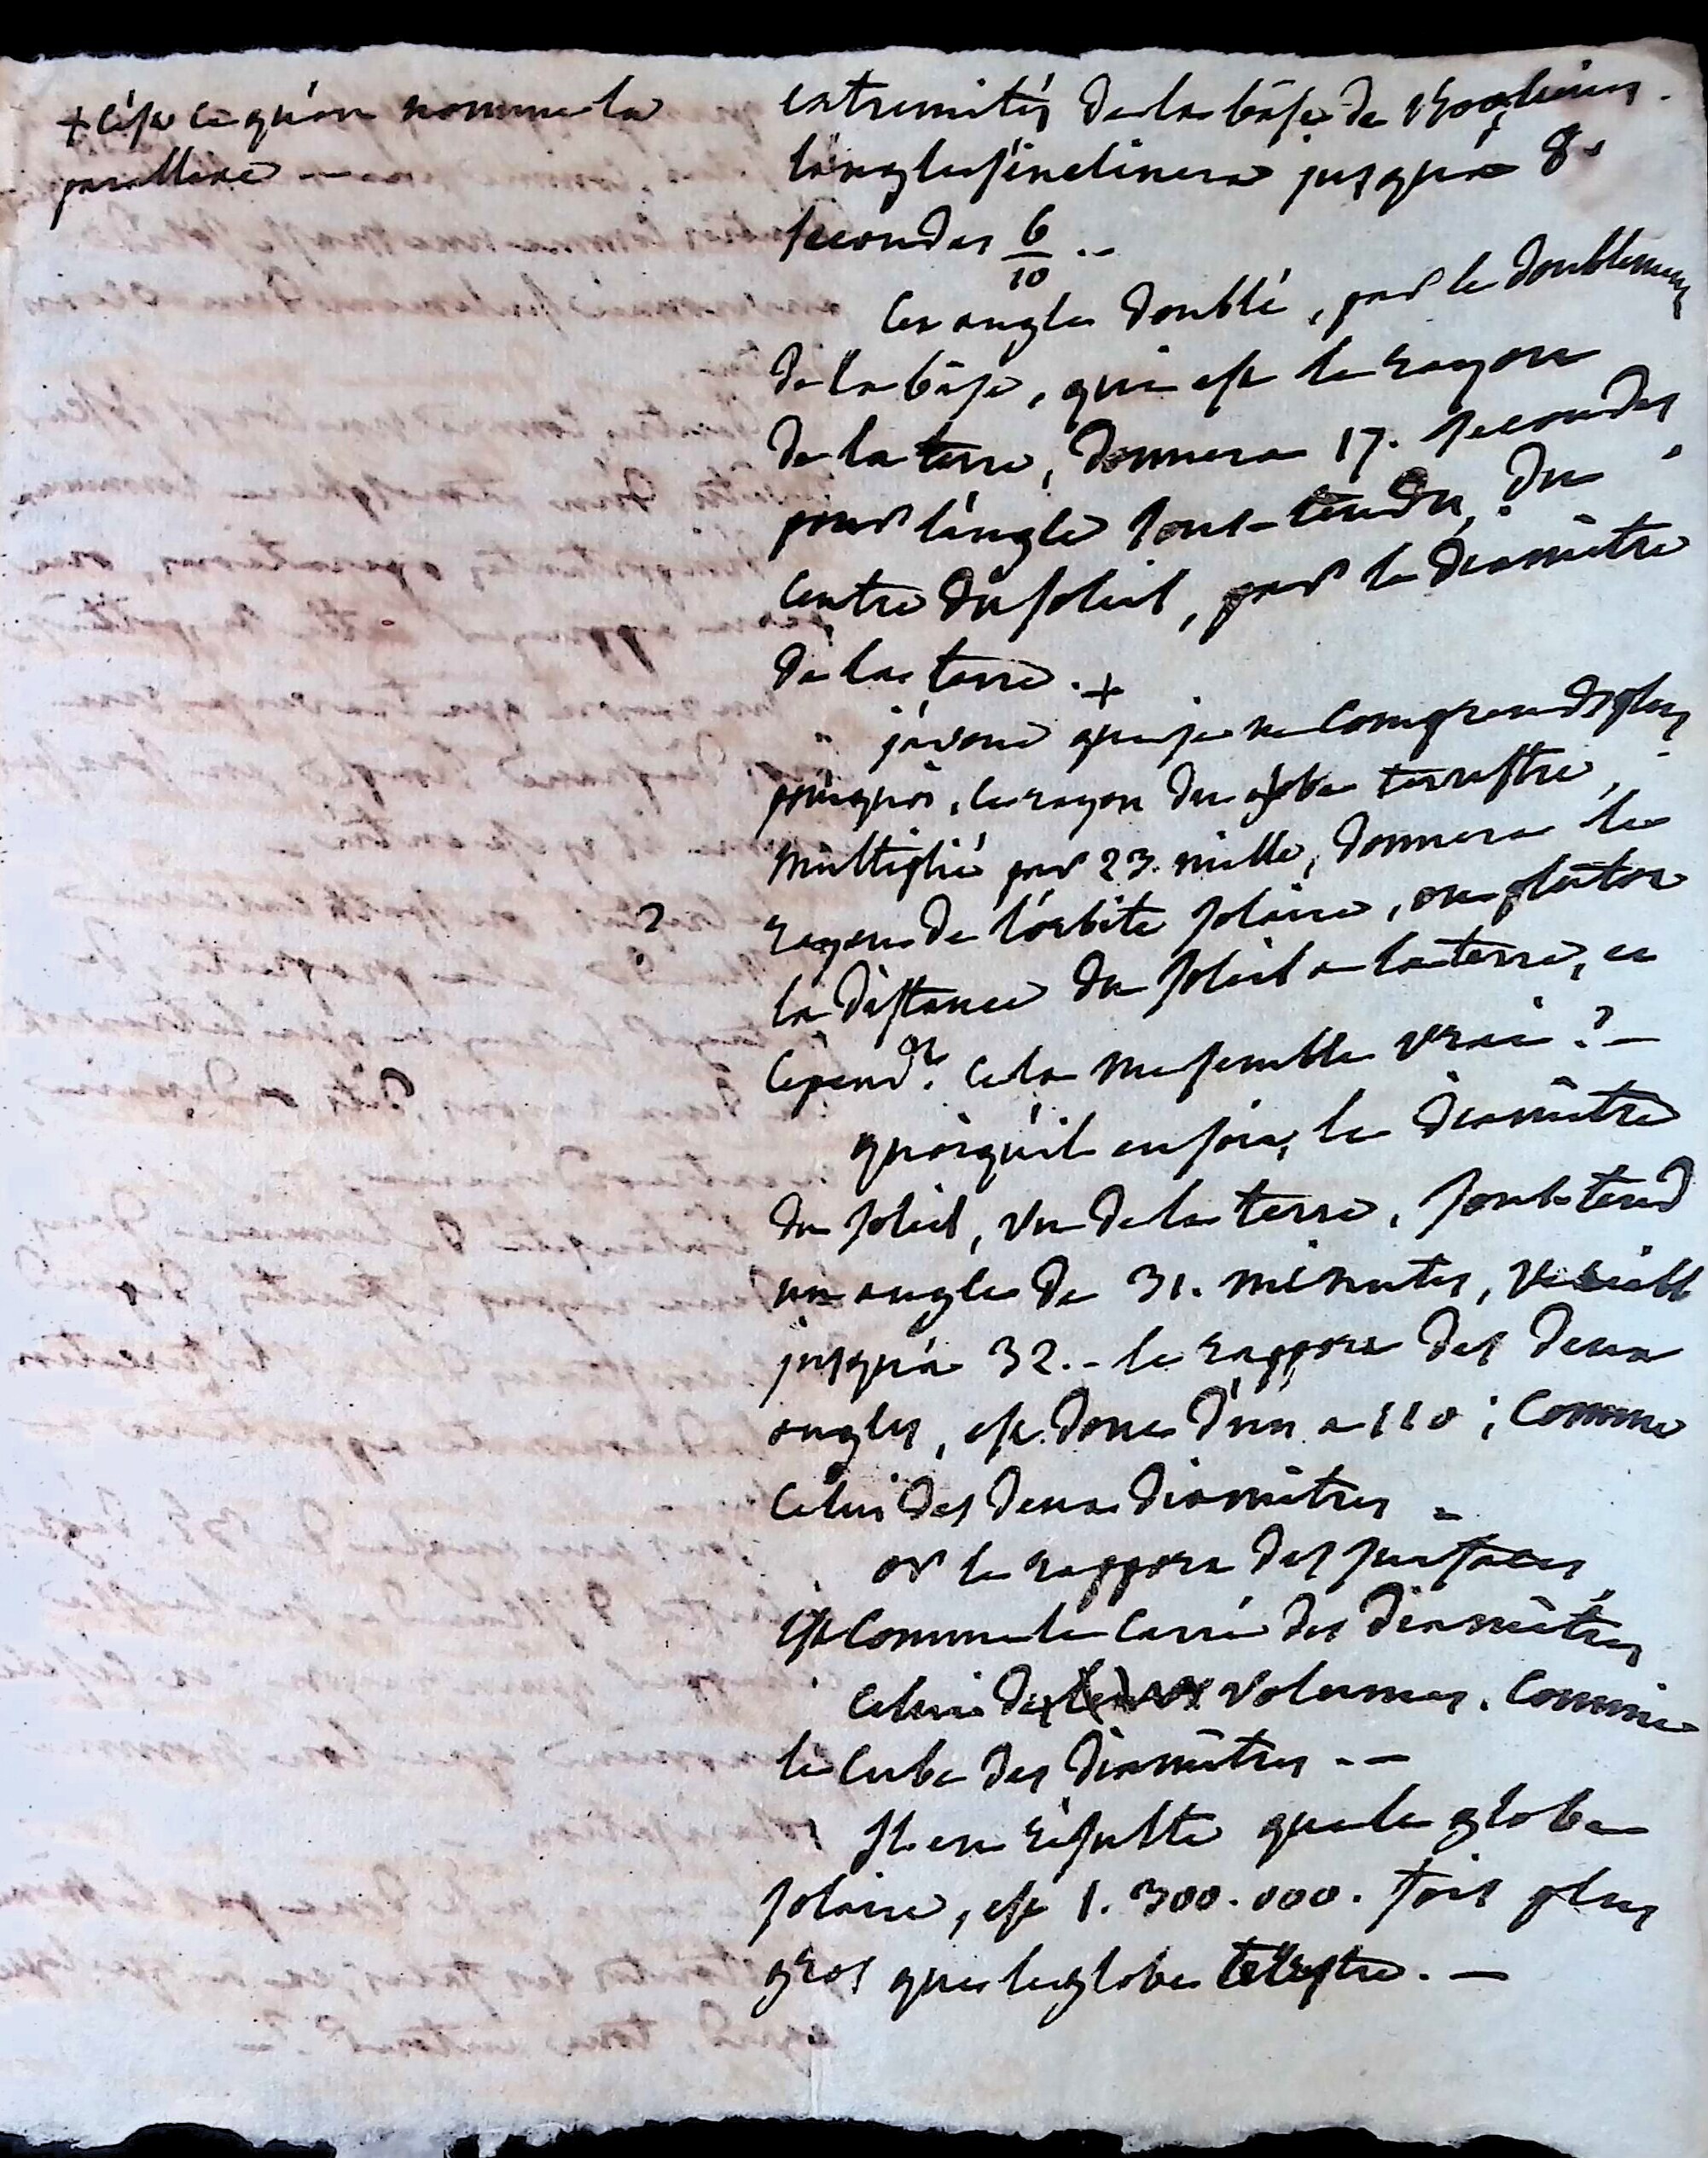 + c'est ce qu'on nomme la
parallaxe —
extremités de la bâse de 1500 lieues.
l'angle s'inclinera jusqu'a 8.
secondes 6/10 ..
cet angle doublé, par le doublement
de la bâse, qui est le rayon
de la terre, donnera 17. secondes
pour l'angle sous-tendu, du
centre du soleil, par le diamêtre
de la terre. +
j'avoue que je ne comprends plus
pourquoi, le rayon du globe terrestre,
multiplié par 23. mille, donnera le
?
rayon de l'orbite solaire, ou plutot
la distance du soleil a la terre, et
cepend.nt cela me semble vrai ? —
quoiqu'il en soit, le diamêtre
du soleil, vu de la terre, soutend
un angle de 31. minutes,
jusqu'a 32. - le rapport des deux
angles, est donc d'un a 110 ; comme
celui des deux diamêtres =
or le rapport des surfaces,
est comme le carré des diamêtres
celui des volumes, comme
le cube des diamêtres - —
Il en résulte que le globe
solaire, est 1.300.000. fois plus
gros que le globe terrestre. —